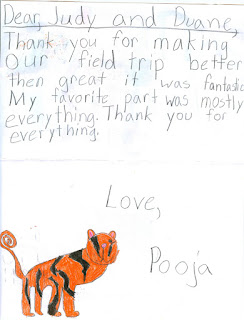 Dear, Judy and Duane,
Thank you for making
Our field trip better
then great it was fantastic
My favorite part was mostly
everything. Thank you for
everything.
Love,
Pooja